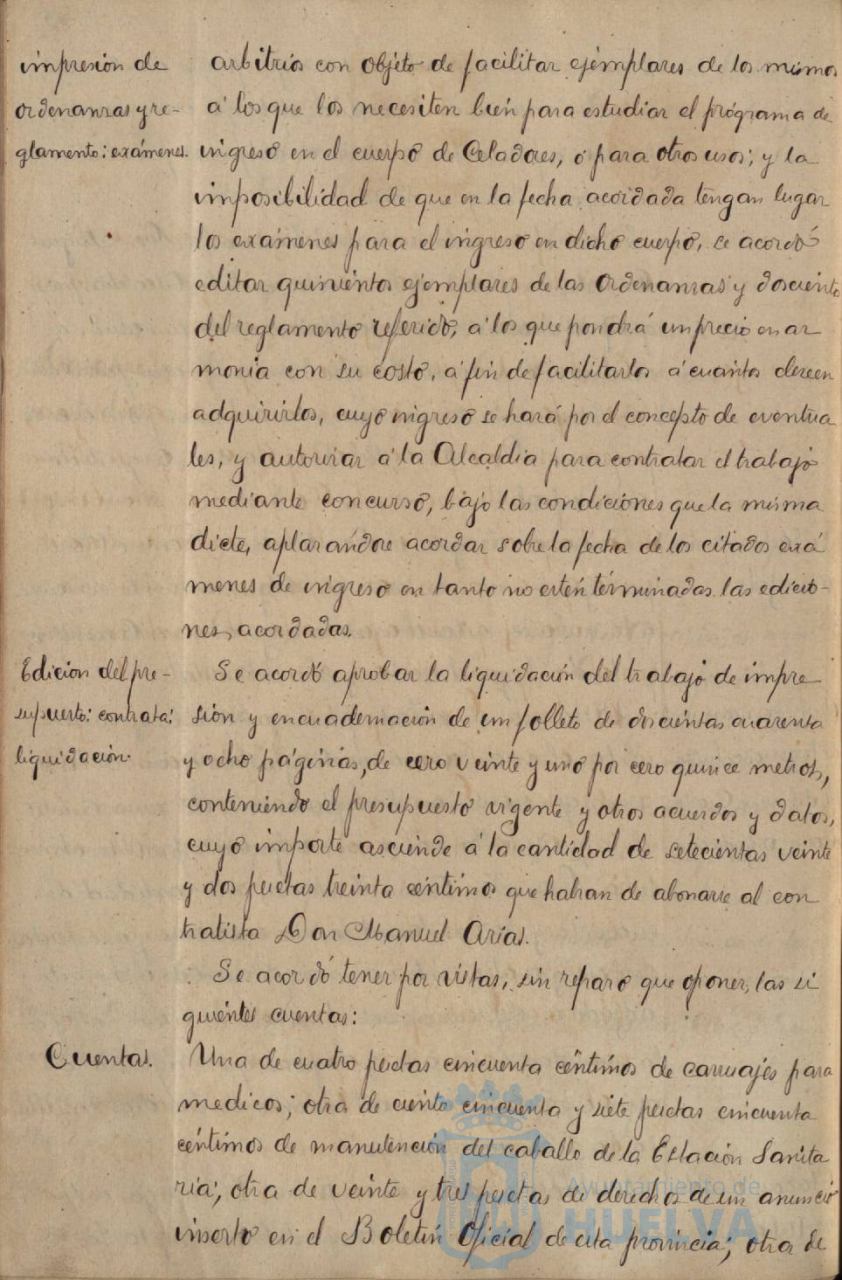 impresión de
ordenanzas y re-
glamento: exámenes.
arbitrios con objeto de facilitar ejemplares de los mismos
á los que los necesiten bién para estudiar el prógrama de
ingreso en el cuerpo de Celadores, ó para otros usos; y la
imposibilidad de que en la fecha acordada tengan lugar
los exámenes para el ingreso en dicho cuerpo, se acordó
editar quinientos ejemplares de las Ordenanzas y doscientos
del reglamento referido, á los que pondrá un precio en ar
monia con su costo, á fin de facilitarlos á cuantos deseen
adquirirlos, cuyo ingreso se hará por el concepto de eventua
les, y autorizar á la Alcaldia para contratar el trabajo
mediante concurso, bajo las condiciones que la misma
dicte, aplazandose acordar sobre la fecha de los citados exá
menes de ingreso en tanto no estén terminadas las edicio-
nes, acordadas.
Edicion del pre-
supuesto: contrata:
liquidación.
Se acordó aprobar la liquidación del trabajo de impre
sión y encuadernación de un folleto de doscientas cuarenta
y ocho páginas, de cero veinte y uno por cero quince metros,
conteniendo el presupuesto vigente y otros acuerdos y datos,
cuyo importe asciende á la cantidad de setecientas veinte
y dos pesetas treinta céntimos que habran de abonarse al con
tratista Don Manuel Arias.
Se acordó tener por vistas, sin reparo que oponer, las si
guientes cuentas:
Cuentas.
Una de cuatro pesetas cincuenta céntimos de carruajes para
medicos; otra de ciento cincuenta y siete pesetas cincuenta
céntimos de manutención del caballo de la Estación Sanita
ria; otra de veinte y tres pesetas de derechos de un anuncio
inserto en el Boletín Oficial de esta provincia; otra de
Ayuntamiento de
HUELVA